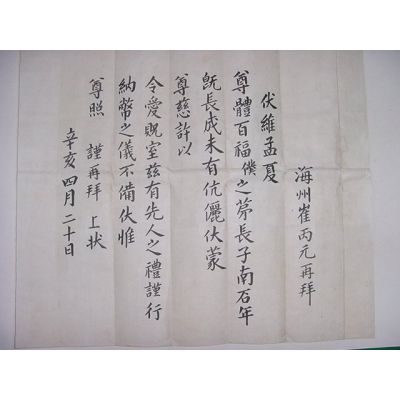 海州崔丙元再拜
伏維孟夏
尊體百福僕之第長子南石年
旣長成未有伉儷伏蒙
尊慈許以
令愛貺室玆有先人之禮謹行
納幣之儀不備伏惟
尊照 謹再拜 上狀
辛亥四月二十日